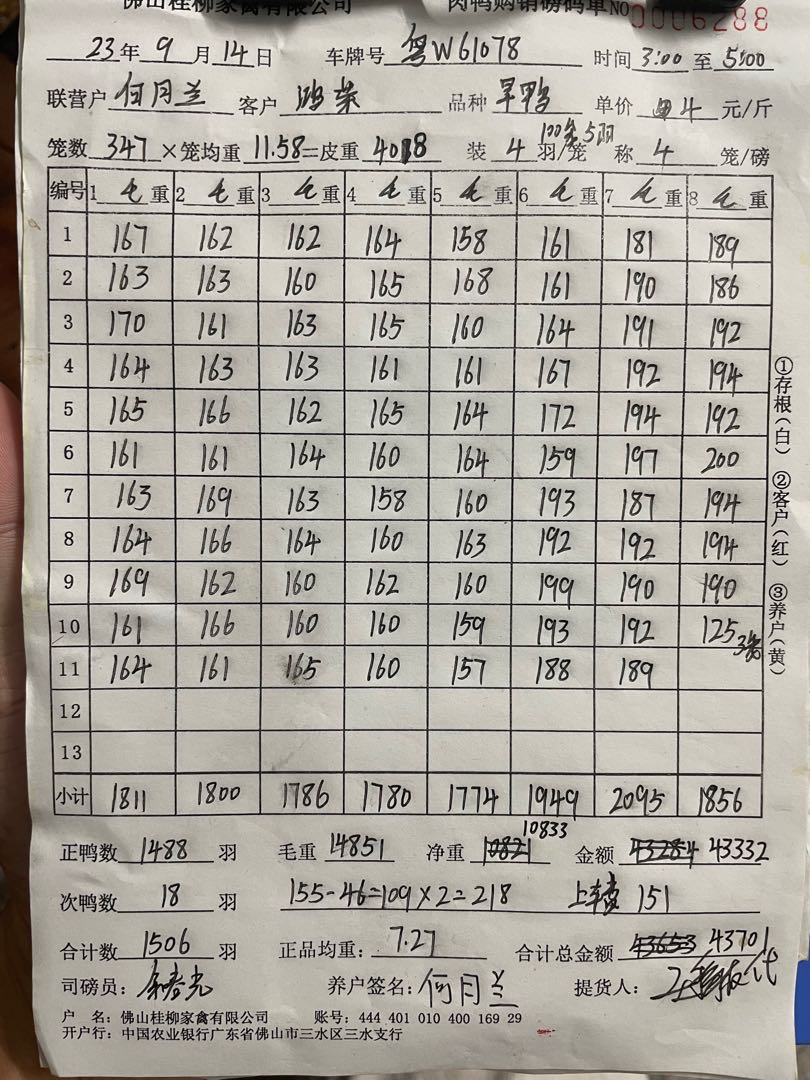 佛山桂柳家禽有限公司 肉鸭购销磅码单 NO 0006288
23年 9月 14日 车牌号 粤W61078 时间 3:00 至 5:00
联营户 何月兰 客户 鸿荣 品种 旱鸭 单价 4 元/斤
笼数 347 ×笼均重 11.58 =皮重 4018 装 4 羽/笼 称 4 笼/磅
编号 1 毛 重 2 毛 重 3 毛 重 4 毛 重 5 毛 重 6 毛 重 7 毛 重 8 毛 重
1 167 162 162 164 158 161 181 189
2 163 163 160 165 168 161 190 186
3 170 161 163 165 160 164 191 192
4 164 163 163 161 161 167 192 194
5 165 166 162 165 164 172 194 192
6 161 161 164 160 164 159 197 200
7 163 169 163 158 160 193 187 194
8 164 166 164 160 163 192 192 194
9 169 162 160 162 160 199 190 190
10 161 166 160 160 159 193 192 125
11 164 161 165 160 157 188 189
12
13
小计 1811 1800 1786 1780 1774 1949 2095 1856
①存根(白) ②客户(红) ③养户(黄)
正鸭数 1488 羽 毛重 14851 净重 10821 10833 金额 43284 43332
次鸭数 18 羽 155-46=109×2=218 151
合计数 1506 羽 正品均重: 7.27 合计总金额 43653 43701
司磅员: 养户签名: 何月兰 提货人:
户 名: 佛山桂柳家禽有限公司 账号: 444 401 010 400 169 29
开户行: 中国农业银行广东省佛山市三水区三水支行